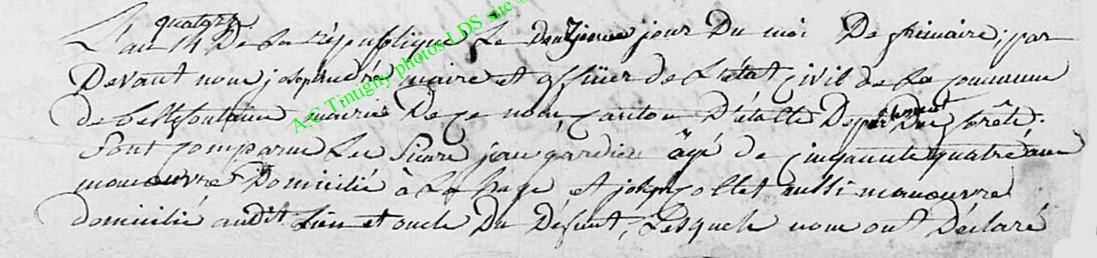 quatorze
L'an 14 De La république Le deuxieme jour Du moi De frimaire, par
Devant nous joseph maire et officier de L'état Civil de La commune
de bellefontaine mairie De ce nom, canton D'étalle Departement Du forêts.
Sont comparu Les Sieurs jean gardien âgé de cinquante quatre ans
manouvre Domicilié à La hage et joseph collet aussi manouvre
domicilié audit Lieu et oncle Du Défunt, Lesquels nous ont Déclaré
A.C Tintigny photos LDS site